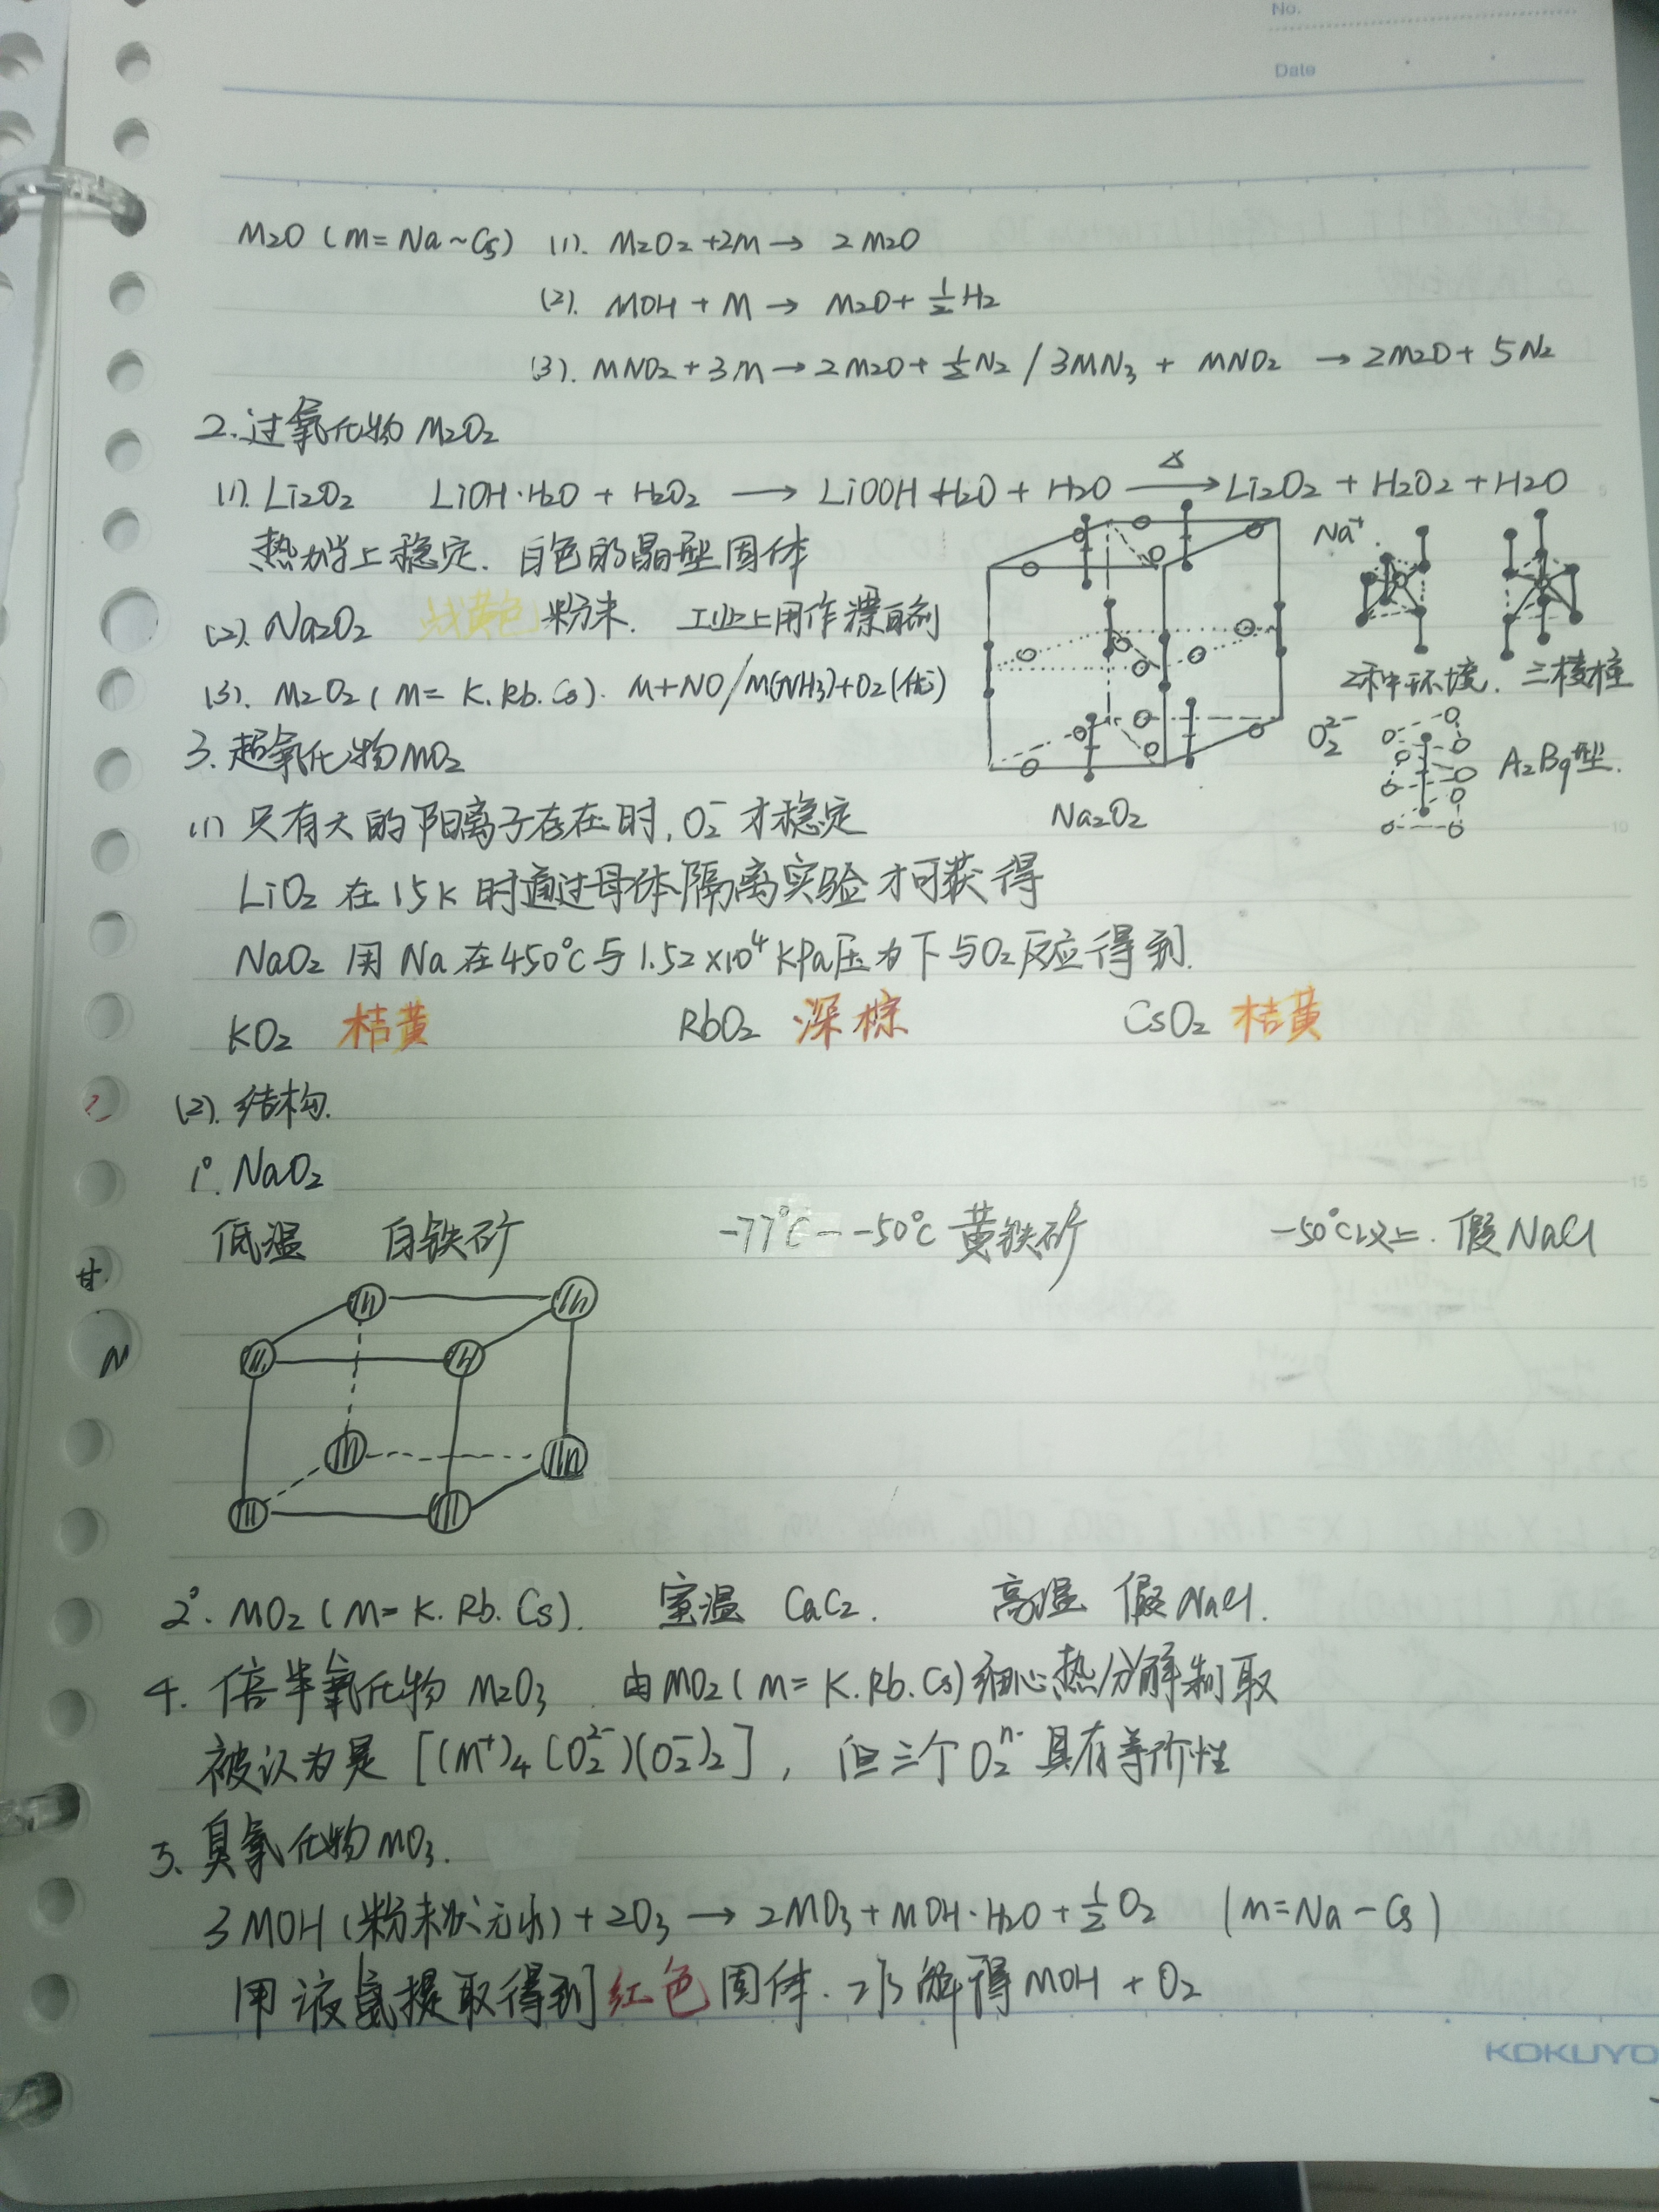 No.
Date
M₂O (M=Na~Cs) (1). M₂O₂+2M→ 2M₂O
(2). MOH + M → M₂O+ ½H₂
(3). MNO₂+3M→2M₂O+½N₂ / 3MN₃ + MNO₂ →2M₂O+ 5N₂
2.过氧化物 M₂O₂
(1). Li₂O₂ LiOH·H₂O + H₂O₂ ⟶ LiOOH·H₂O + H₂O —Δ→ Li₂O₂ + H₂O₂ + H₂O
热力学上稳定. 白色的晶型固体
(2). Na₂O₂ 浅黄色 粉末. 工业上用作漂白剂
(3). M₂O₂ (M= K.Rb.Cs). M+NO/M(NH₃)+O₂(优)
Na⁺.
2种环境. 三棱柱
O₂²⁻
A₂B₉型.
Na₂O₂
3.超氧化物MO₂
(1) 只有大的阳离子存在时,O₂⁻才稳定
LiO₂ 在15K时通过母体隔离实验才可获得
NaO₂ 用 Na 在450℃与1.52×10⁴kPa压力下与O₂反应得到.
KO₂ 桔黄 RbO₂ 深棕 CsO₂ 桔黄
(2). 结构.
1°. NaO₂
低温 白铁矿 -77℃--50℃ 黄铁矿 -50℃以上. 假NaCl
2°. MO₂ (M= K. Rb. Cs). 室温 CaC₂. 高温 假NaCl.
4. 倍半氧化物 M₂O₃ . 由MO₂(M= K.Rb.Cs)细心热分解制取
被认为是 [(M⁺)₄(O₂²⁻)(O₂⁻)₂], 但三个O₂ⁿ⁻具有等价性
5. 臭氧化物MO₃.
3MOH(粉末状无水)+2O₃→2MO₃+MOH·H₂O+½O₂ (M=Na-Cs)
用液氨提取得到红色固体. 水解得MOH + O₂
KOKUYO